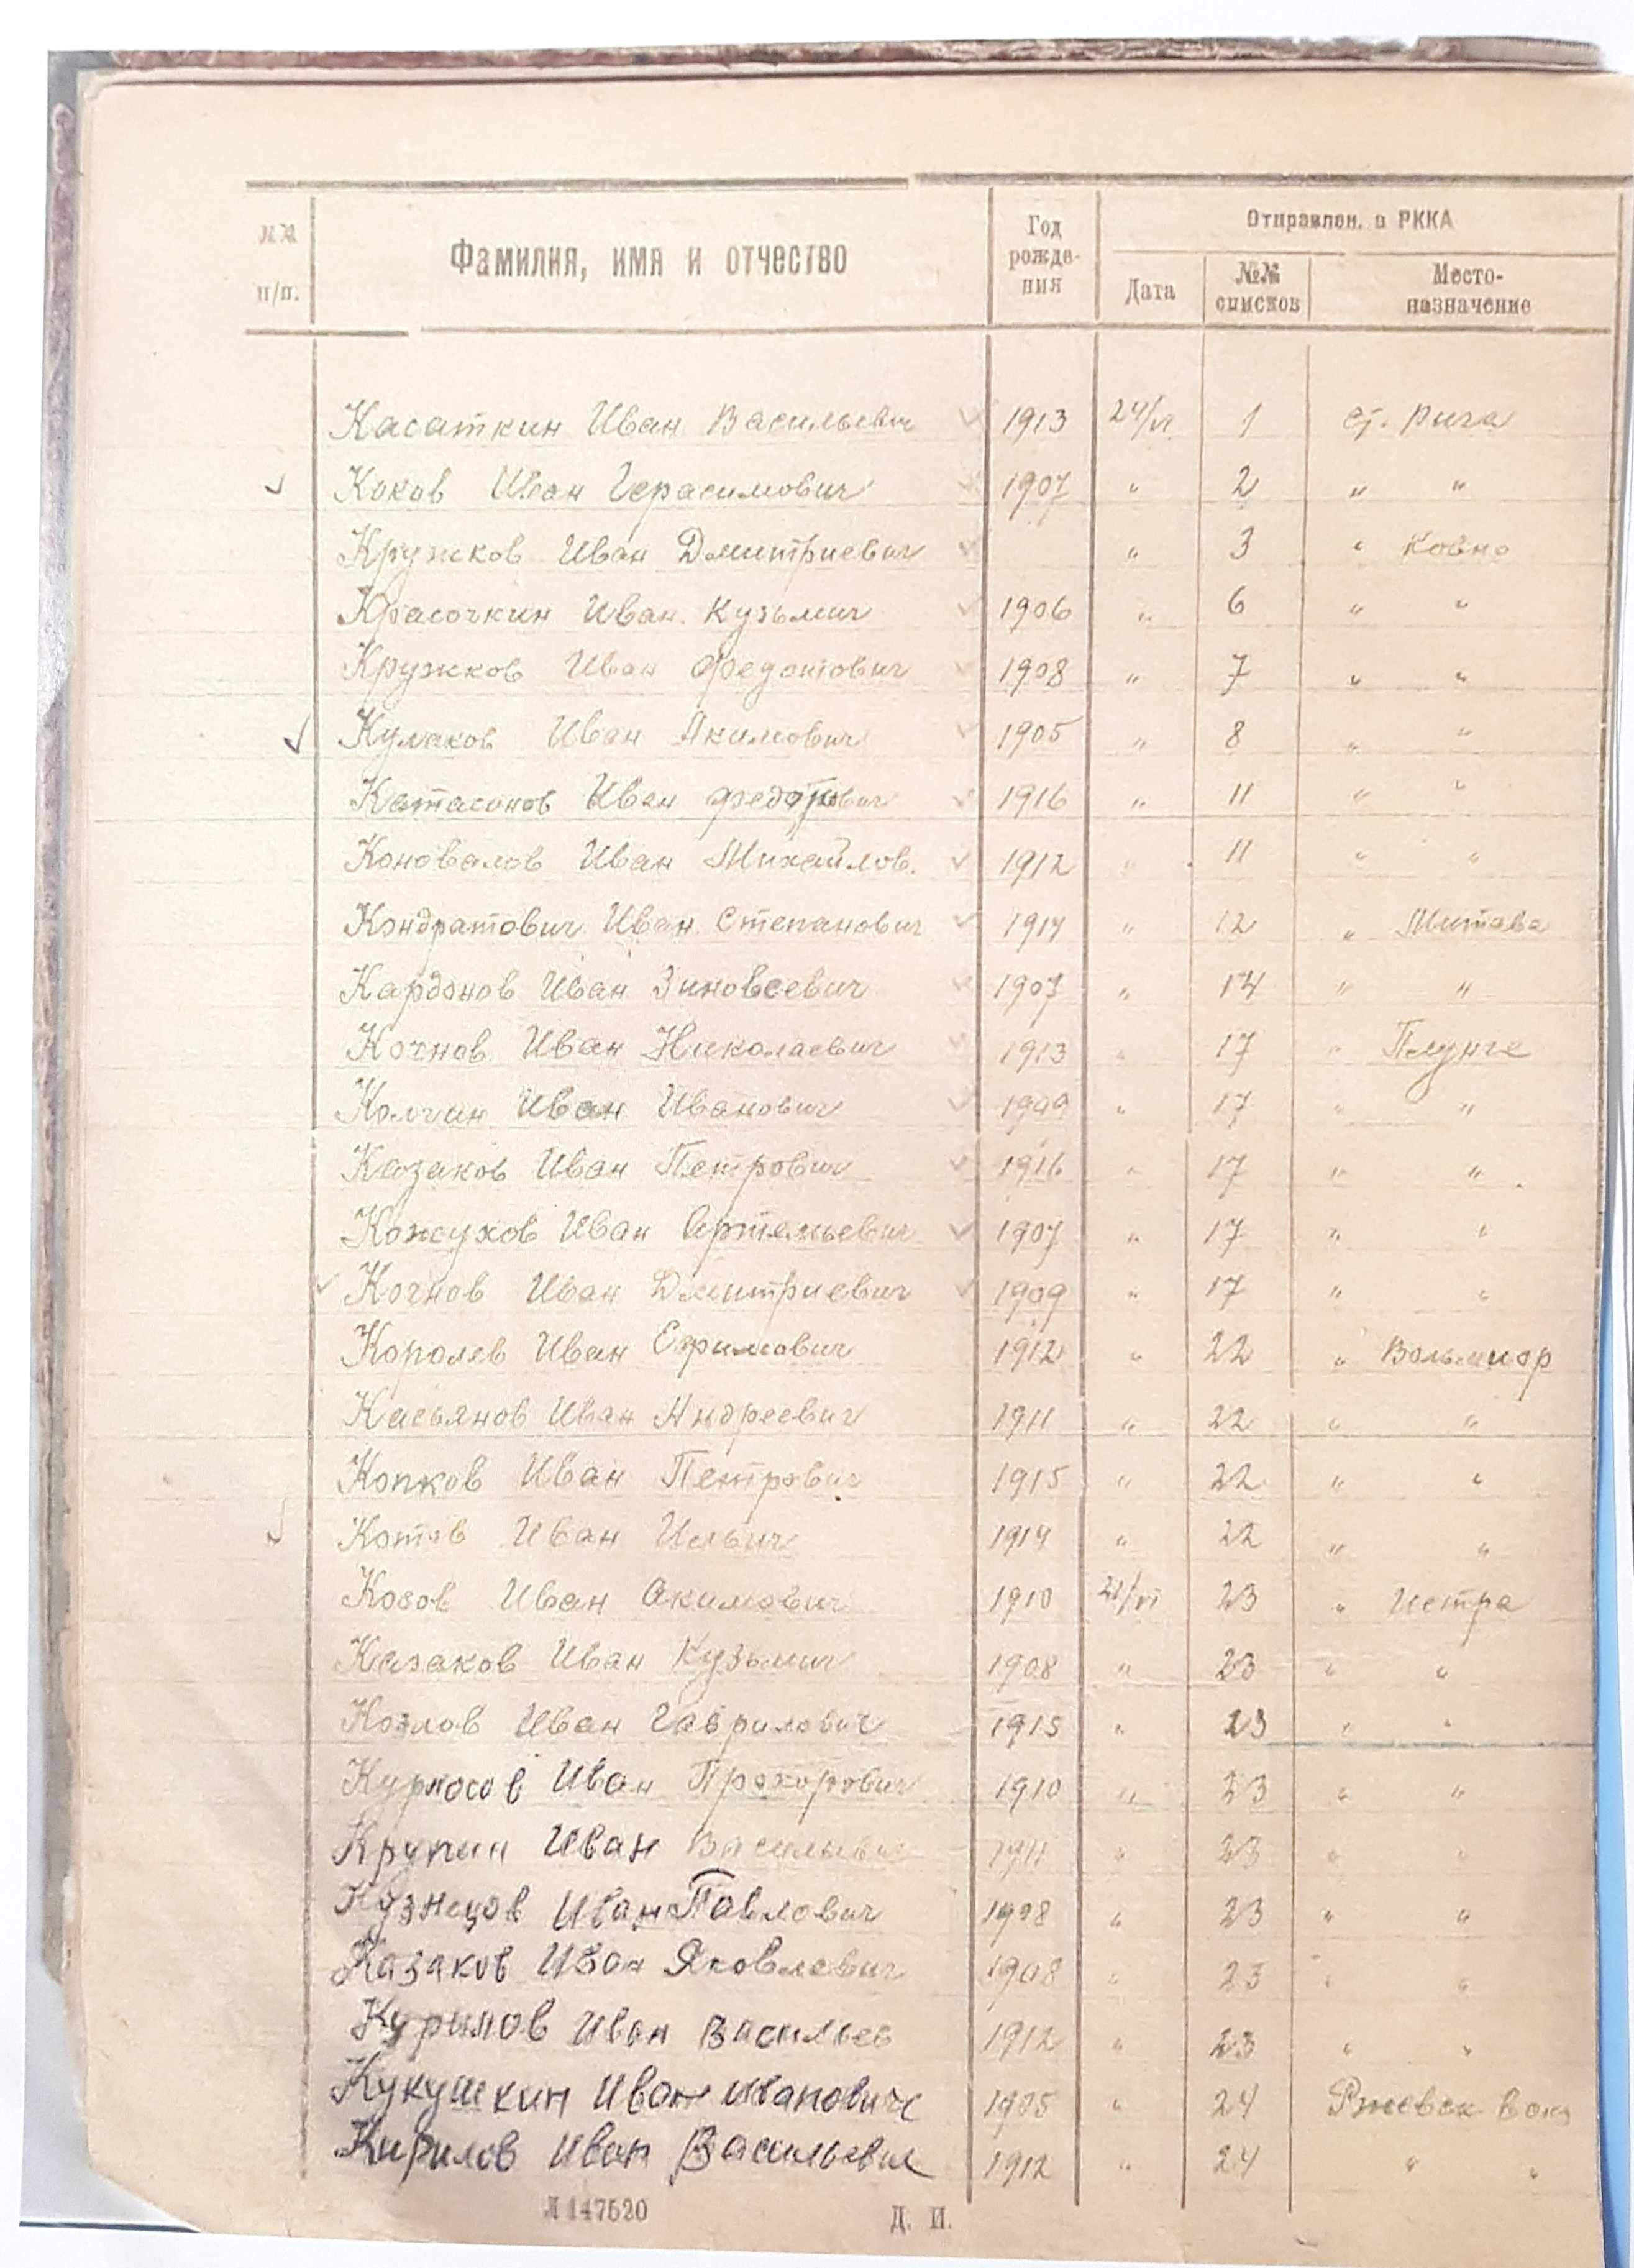 №№ п/п. Фамилия, имя и отчество Год рожде- ния Отправлен. в РККА
Дата №№ списков Место- назначение
Касаткин Иван Васильевич 1913 24/VI 1 ст. Рига
Коков Иван Герасимович 1907 " 2 " "
Кружков Иван Дмитриевич " 3 " Ковно
Красочкин Иван Кузьмич 1906 " 6 " "
Кружков Иван Федотович 1908 " 7 " "
Кулаков Иван Акимович 1905 " 8 " "
Катасонов Иван Федорович 1916 " 11 " "
Коновалов Иван Михайлов. 1912 " 11 " "
Кондратович Иван Степанович 1914 " 12 " Митава
Кардонов Иван Зиновеевич 1907 " 14 " "
Кочнов Иван Николаевич 1913 " 17 " Плунге
Колчин Иван Иванович 1909 " 17 " "
Казаков Иван Петрович 1916 " 17 " "
Кожухов Иван Артемьевич 1907 " 17 " "
Кочнов Иван Дмитриевич 1909 " 17 " "
Королев Иван Ефимович 1912 " 22 " Вольмиор
Касьянов Иван Андреевич 1911 " 22 " "
Копков Иван Петрович 1915 " 22 " "
Котов Иван Ильич 1914 " 22 " "
Козов Иван Акимович 1910 23 " Истра
Казаков Иван Кузьмич 1908 " 23 " "
Козлов Иван Гаврилович 1915 " 23 " "
Курносов Иван Прохорович 1910 " 23 " "
Крупин Иван Васильевич 1911 " 23 " "
Кузнецов Иван Павлович 1908 " 23 " "
Казаков Иван Яковлевич 1908 " 23 " "
Курилов Иван Васильев 1912 " 23 " "
Кукушкин Иван Иванович 1905 " 24 Ржевск вокз
Кирилов Иван Васильевич 1912 " 24 " "
Л 147520 Д. И.